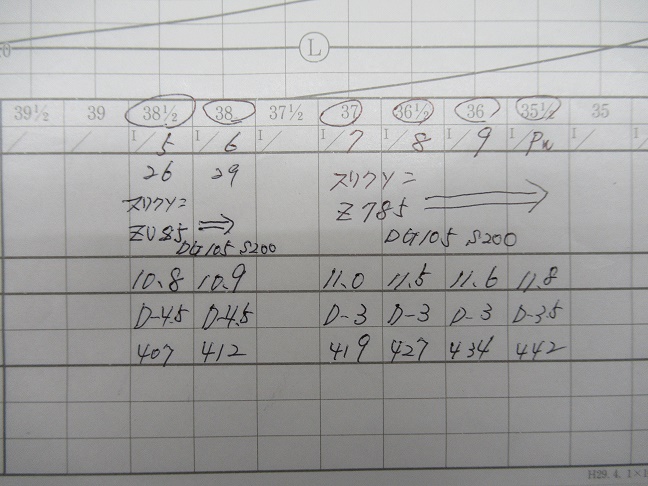 L
39½ 39 38½ 38 37½ 37 36½ 36 35½ 35
I/5 I/6 I/7 I/8 I/9
26 29
スリクソ=
スリクソ=
Z785
DG105 S200
DG105 S200
10.8 10.9 11.0 11.5 11.6 11.8
D-4.5 D-4.5 D-3 D-3 D-3 D-3.5
407 412 419 427 434 442
H29. 4. 1×1